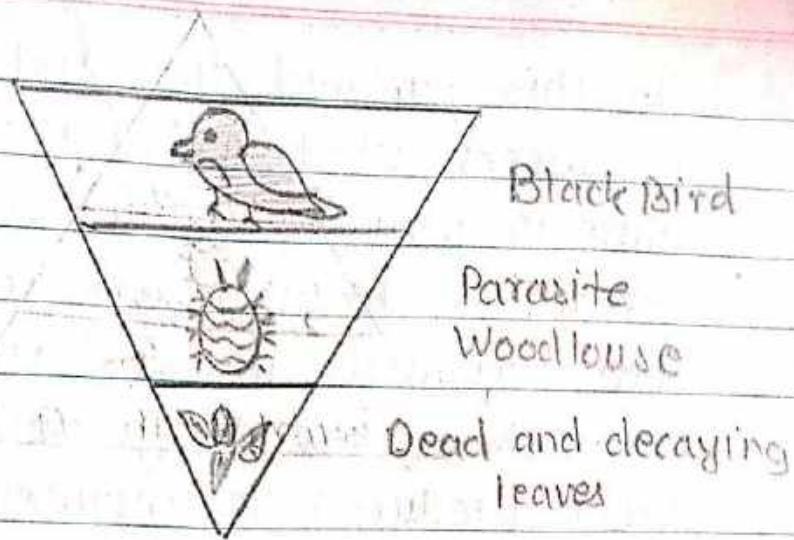 Black Bird
Parasite
Woodlouse
Dead and decaying
leaves